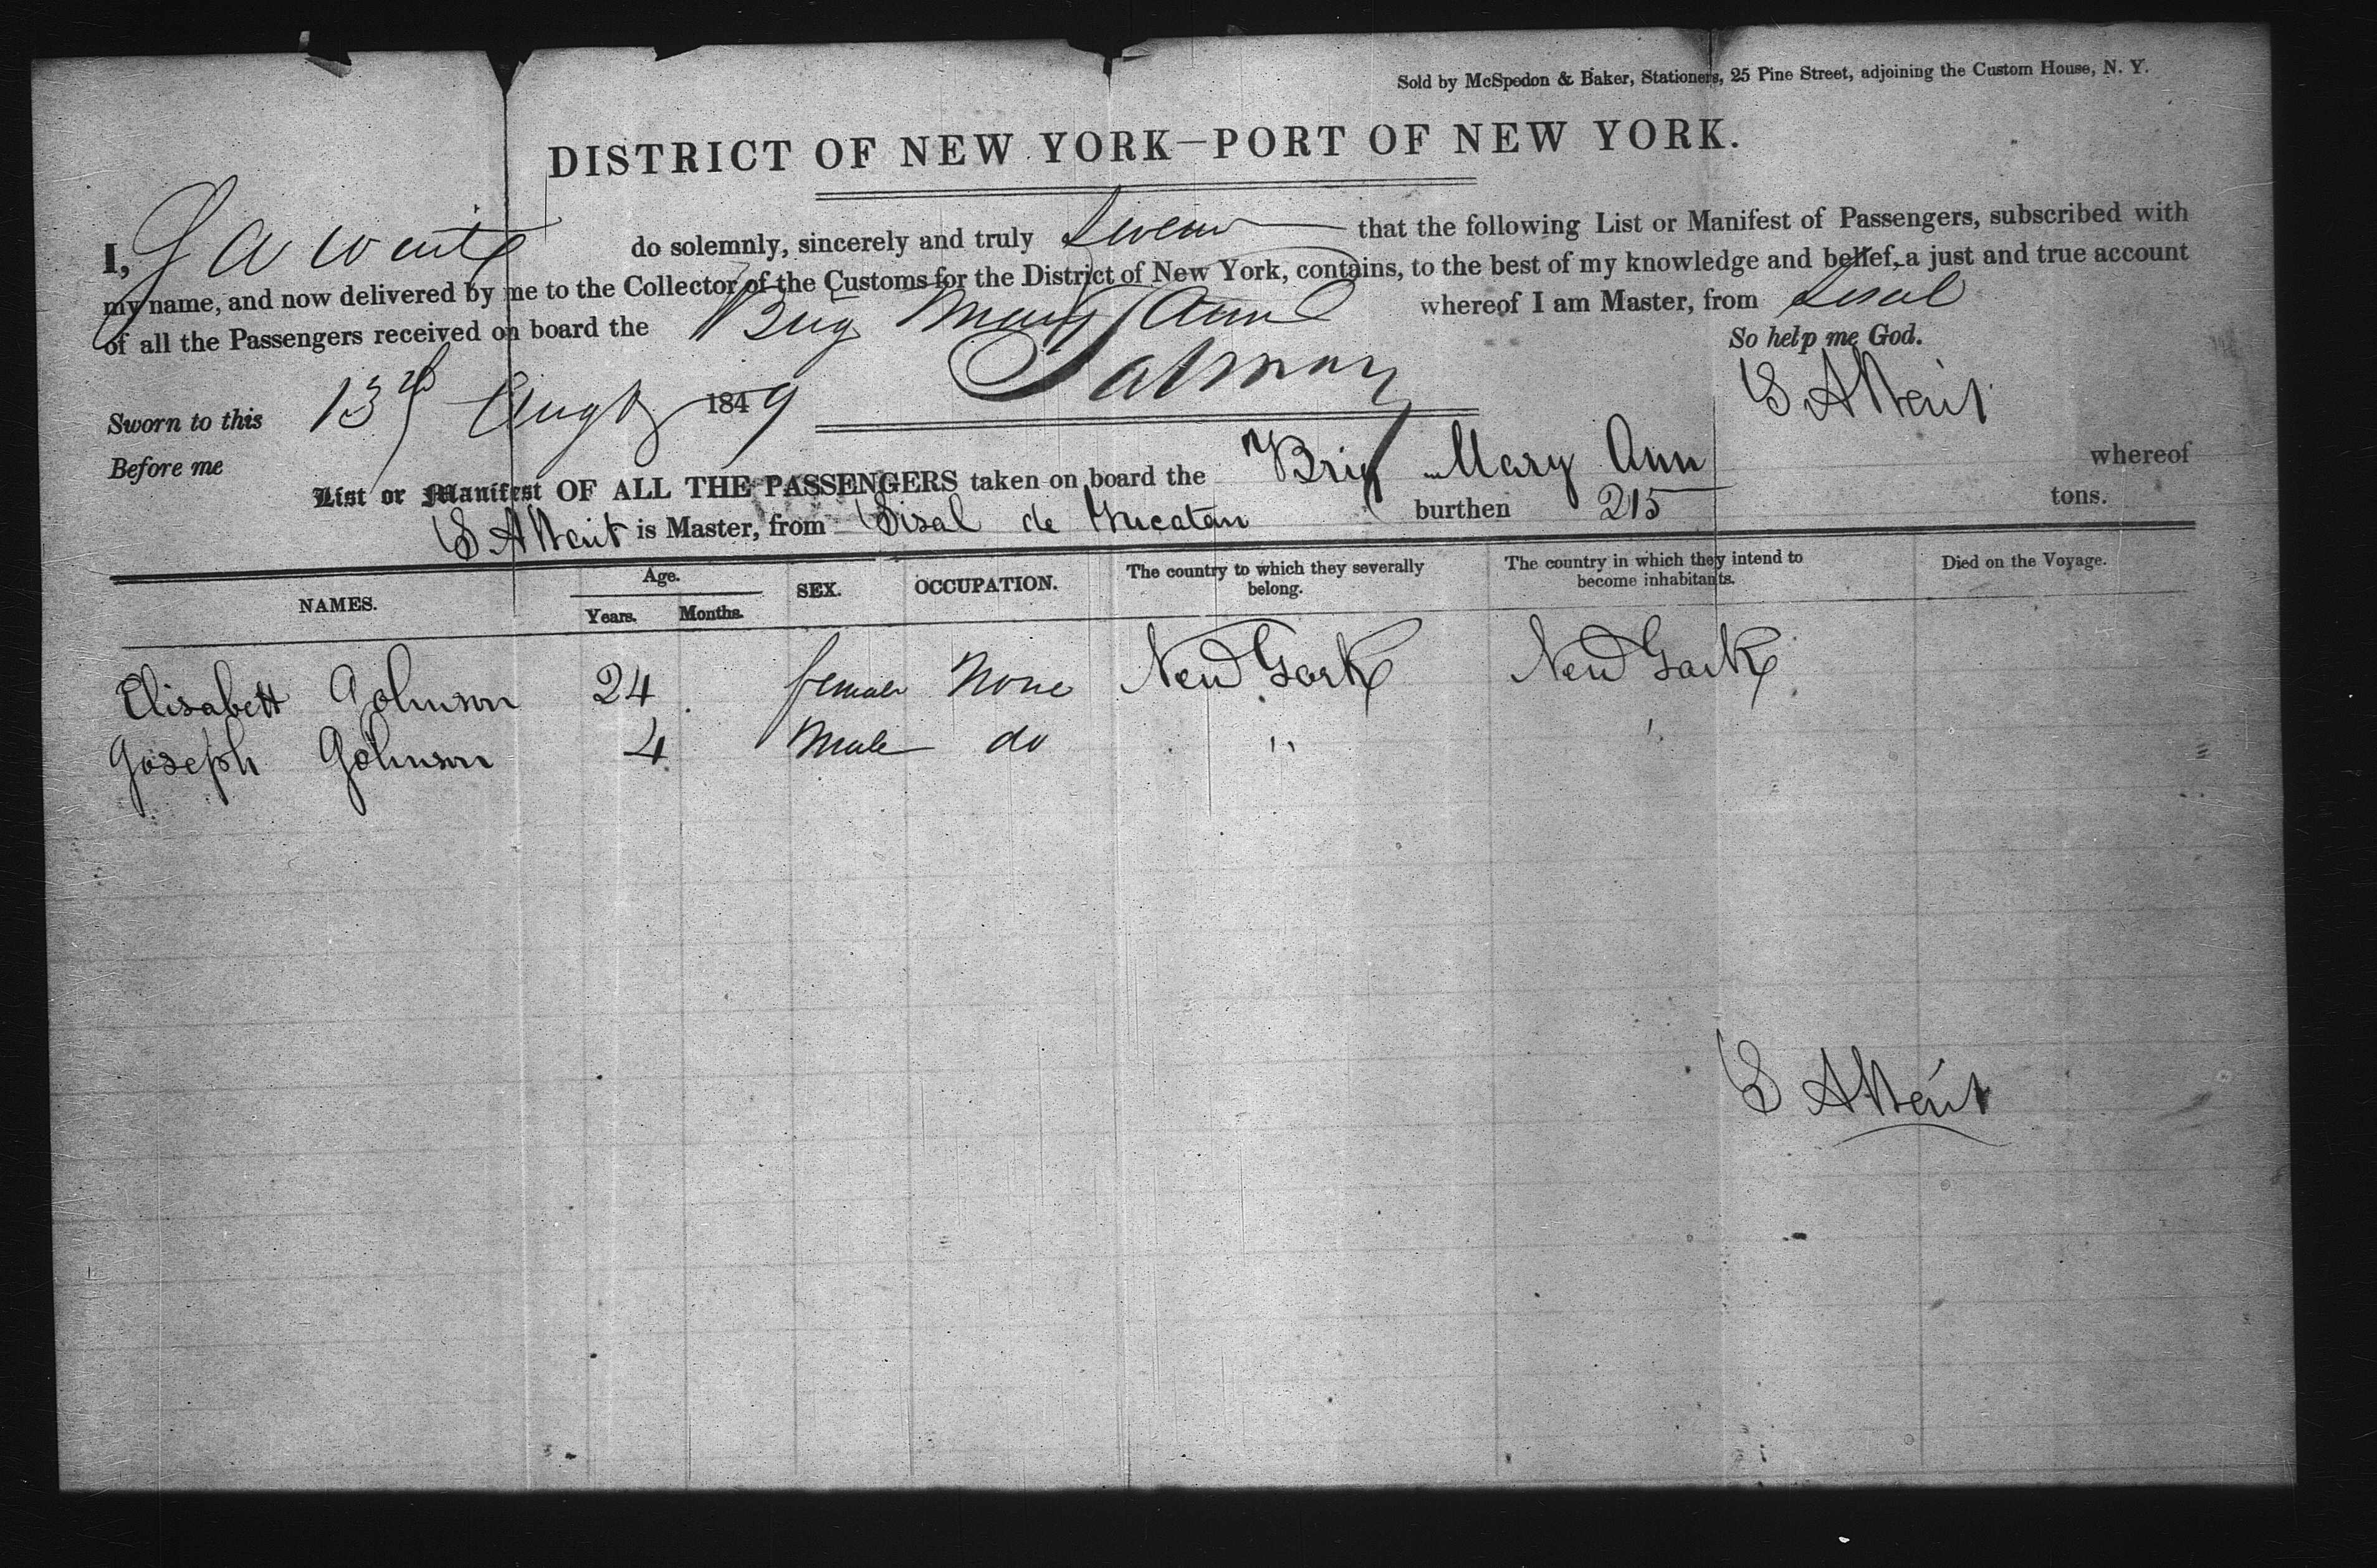 Sold by McSpedon & Baker, Stationers, 25 Pine Street, adjoining the Custom House, N. Y.
DISTRICT OF NEW YORK—PORT OF NEW YORK.
I, S A do solemnly, sincerely and truly swear that the following List or Manifest of Passengers, subscribed with
my name, and now delivered by me to the Collector of the Customs for the District of New York, contains, to the best of my knowledge and belief, a just and true account
of all the Passengers received on board the Brig Mary Ann whereof I am Master, from Sisal
So help me God.
Sworn to this 13th Augt 1849
S A
Before me
List or Manifest OF ALL THE PASSENGERS taken on board the Brig Mary Ann whereof
S A is Master, from Sisal de Yucatan burthen 215 tons.
NAMES. Age. SEX. OCCUPATION. The country to which they severally belong. The country in which they intend to become inhabitants. Died on the Voyage.
Years. Months.
Elisabett Johnson 24 female None New York New York
Joseph Johnson 4 Male do " "
S A